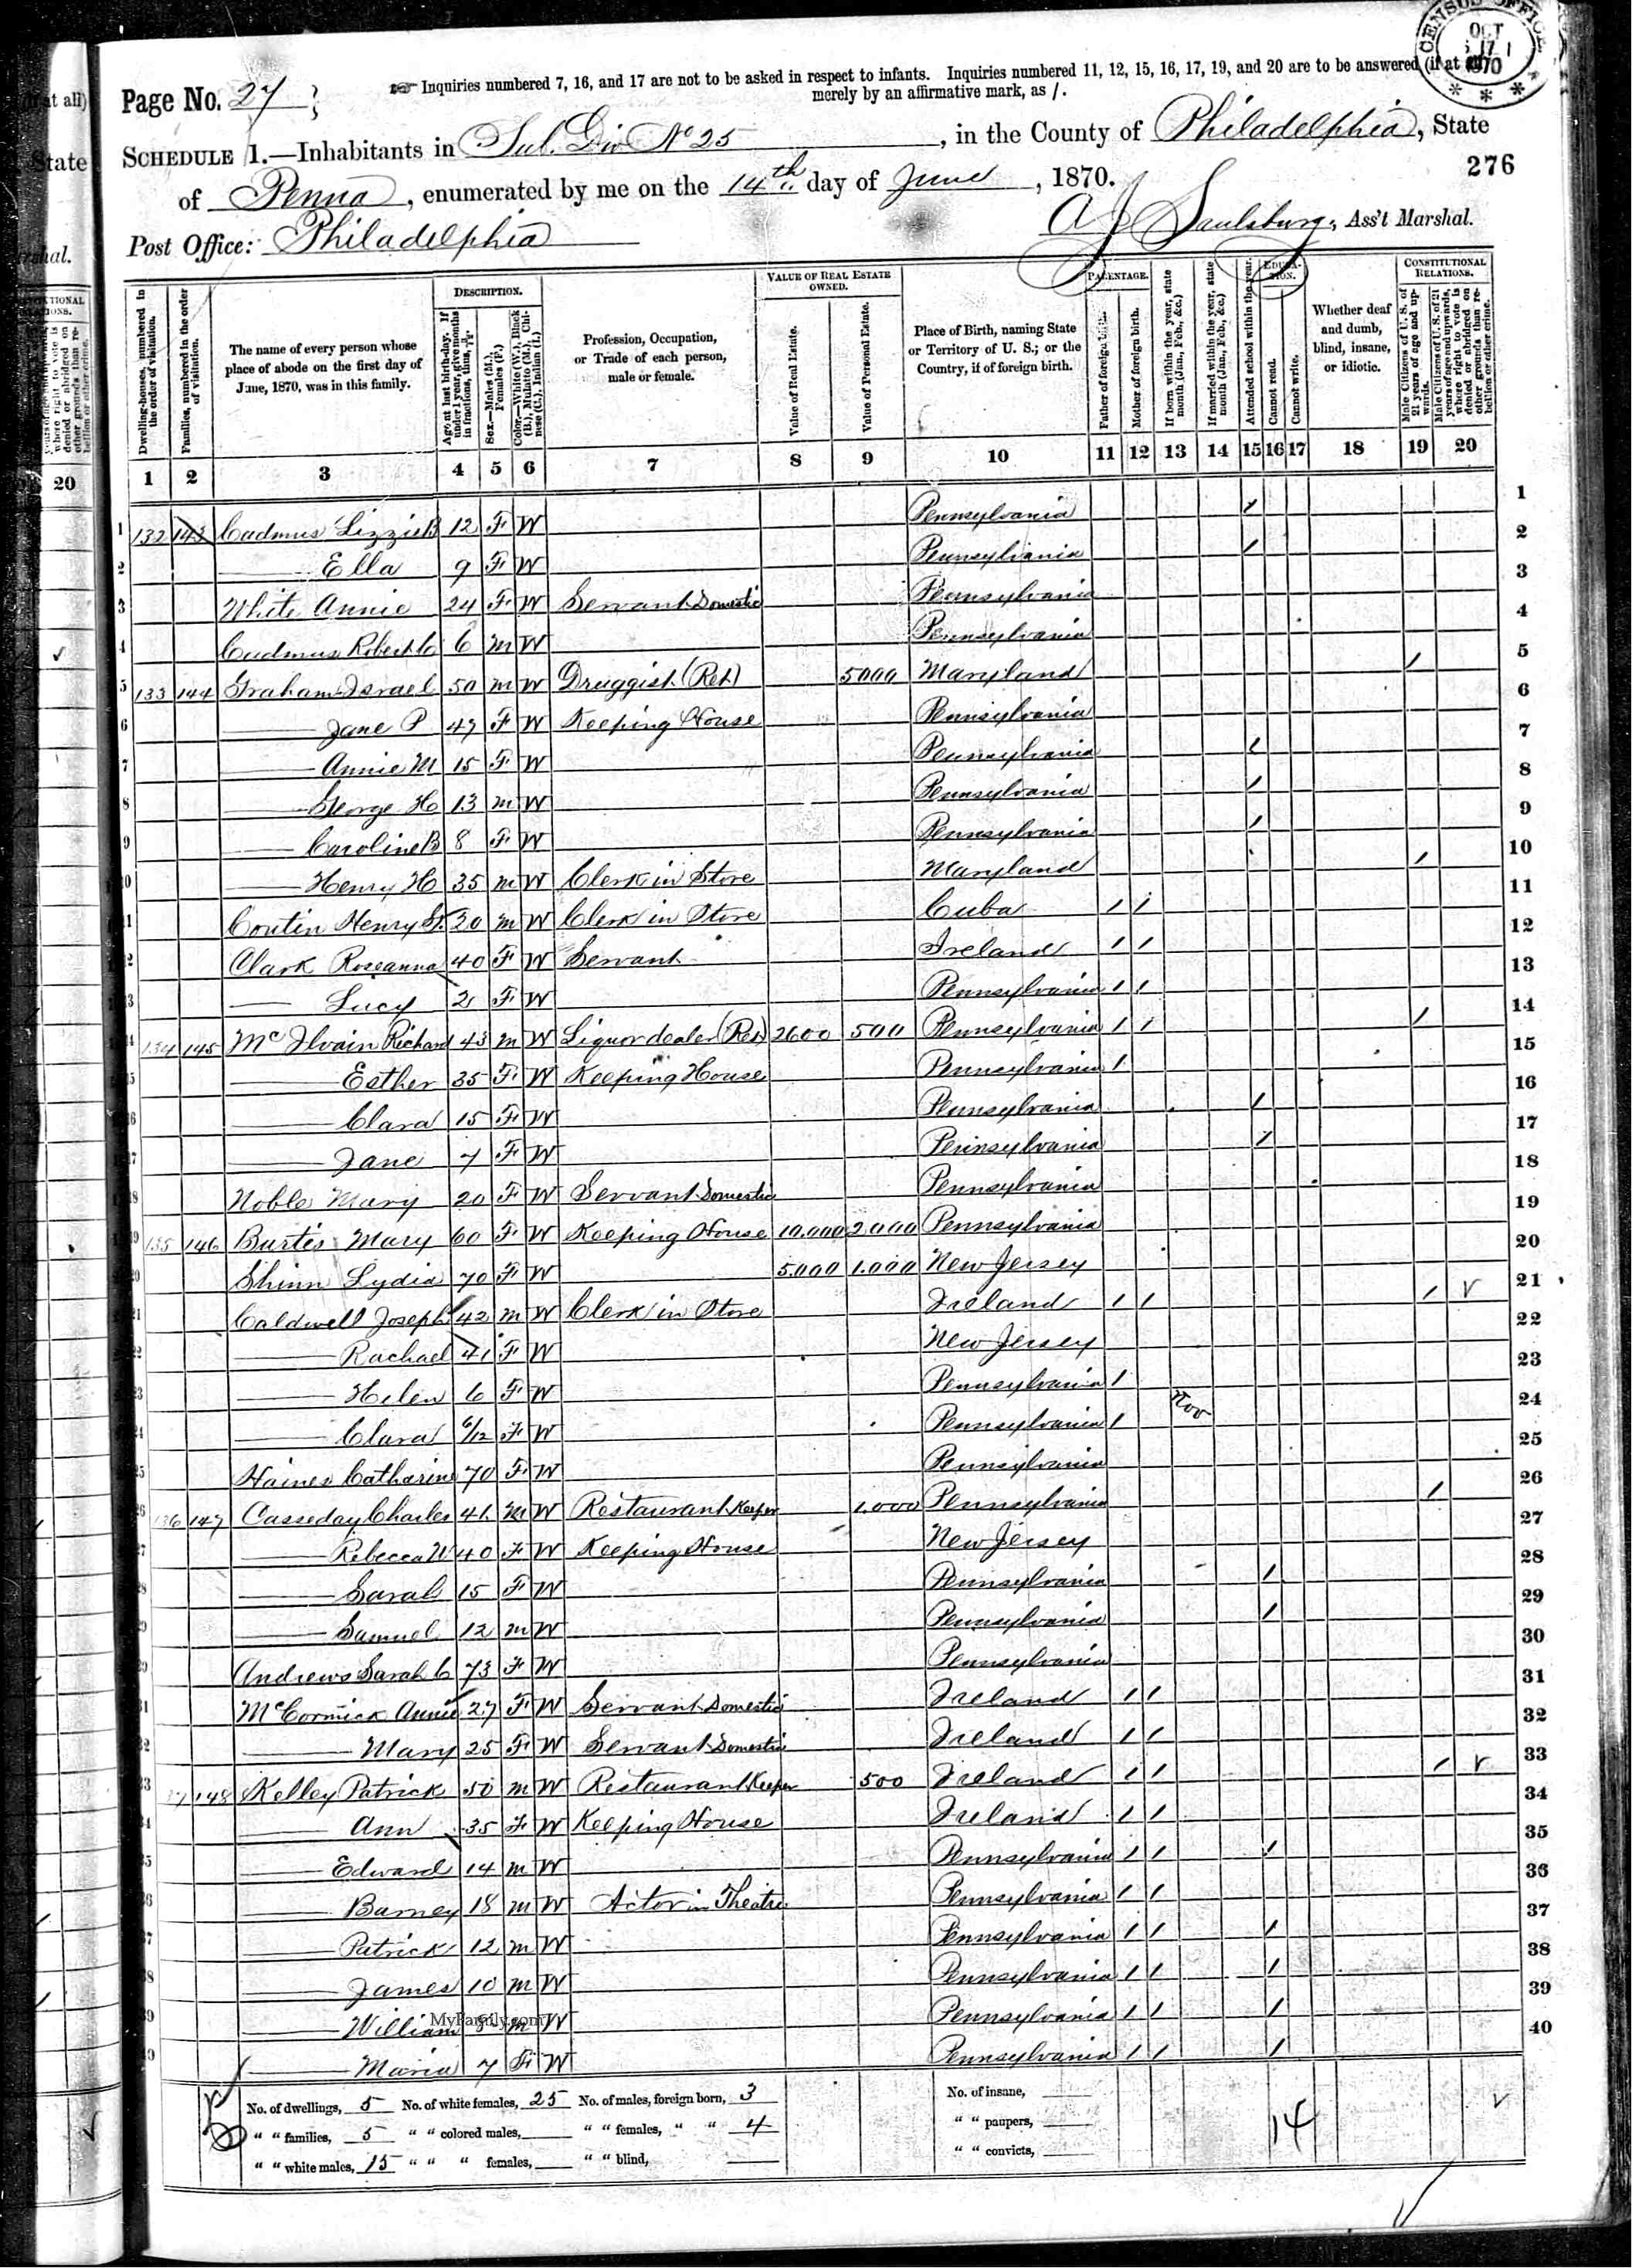 CENSUS OFFICE
OCT
1870
* * *
Page No. 27
Inquiries numbered 7, 16, and 17 are not to be asked in respect to infants. Inquiries numbered 11, 12, 15, 16, 17, 19, and 20 are to be answered (if at all)
merely by an affirmative mark, as /.
SCHEDULE 1.—Inhabitants in Sub. Div No 25, in the County of Philadelphia, State
276
of Penna, enumerated by me on the 14th day of June, 1870.
A J Saulsbury, Ass't Marshal.
Post Office: Philadelphia
Dwelling-houses, numbered in the order of visitation.
Families, numbered in the order of visitation.
The name of every person whose place of abode on the first day of June, 1870, was in this family.
DESCRIPTION.
Age at last birth-day. If under 1 year, give months in fractions, thus, 3/12.
Sex.—Males (M.), Females (F.)
Color.—White (W.), Black (B.), Mulatto (M.), Chinese (C.), Indian (I.)
Profession, Occupation, or Trade of each person, male or female.
VALUE OF REAL ESTATE OWNED.
Value of Real Estate.
Value of Personal Estate.
Place of Birth, naming State or Territory of U. S.; or the Country, if of foreign birth.
PARENTAGE.
Father of foreign birth.
Mother of foreign birth.
If born within the year, state month (Jan., Feb., &c.)
If married within the year, state month (Jan., Feb., &c.)
Attended school within the year.
EDUCATION.
Cannot read.
Cannot write.
Whether deaf and dumb, blind, insane, or idiotic.
CONSTITUTIONAL RELATIONS.
Male Citizens of U. S. of 21 years of age and upwards.
Male Citizens of U. S. of 21 years of age and upwards, where right to vote is denied or abridged on other grounds than rebellion or other crime.
1 2 3 4 5 6 7 8 9 10 11 12 13 14 15 16 17 18 19 20
1 132 143 Cadmus Lizzie B 12 F W Pennsylvania / 1
2 —— Ella 9 F W Pennsylvania / 2
3 White Annie 24 F W Servant Domestic Pennsylvania 3
4 Cadmus Robert C 6 m W Pennsylvania 4
5 133 144 Graham Israel 50 m W Druggist (Ret) 5000 Maryland / 5
6 —— Jane P 47 F W Keeping House Pennsylvania 6
7 —— Annie M 15 F W Pennsylvania / 7
8 —— George H 13 m W Pennsylvania / 8
9 —— Caroline B 8 F W Pennsylvania / 9
10 —— Henry H 35 m W Clerk in Store Maryland / 10
11 Henry 20 m W Clerk in Store Cuba / / 11
12 Clark Roseanna 40 F W Servant Ireland / / 12
13 —— Lucy 2 F W Pennsylvania / / 13
14 134 145 McIlvain Richard 43 m W Liquor dealer (Ret) 2600 500 Pennsylvania / / / 14
15 —— Esther 35 F W Keeping House Pennsylvania / 15
16 —— Clara 15 F W Pennsylvania / 16
17 —— Jane 7 F W Pennsylvania / 17
18 Noble Mary 20 F W Servant Domestic Pennsylvania 18
19 135 146 Burtis Mary 60 F W Keeping House 10.000 2.000 Pennsylvania 19
20 Shinn Lydia 70 F W 5.000 1.000 New Jersey 20
21 Caldwell Joseph 42 m W Clerk in Store Ireland / / / √ 21
22 —— Rachael 41 F W New Jersey 22
23 —— Helen 6 F W Pennsylvania / 23
24 —— Clara 6/12 F W Pennsylvania / Nov 24
25 Haines Catharine 70 F W Pennsylvania 25
26 136 147 Casseday Charles 41 m W Restaurant Keeper 1.000 Pennsylvania / 26
27 —— Rebecca W 40 F W Keeping House New Jersey 27
28 —— Sarah 15 F W Pennsylvania / 28
29 —— Samuel 12 m W Pennsylvania / 29
30 Andrews Sarah C 73 F W Pennsylvania 30
31 McCormick Annie 27 F W Servant Domestic Ireland / / 31
32 —— Mary 25 F W Servant Domestic Ireland / / 32
33 148 Kelley Patrick 50 m W Restaurant Keeper 500 Ireland / / / √ 33
34 —— Ann 35 F W Keeping House Ireland / / 34
35 —— Edward 14 m W Pennsylvania / / / 35
36 —— Barney 18 m W Actor in Theatre Pennsylvania / / 36
37 —— Patrick 12 m W Pennsylvania / / / 37
38 —— James 10 m W Pennsylvania / / / 38
39 —— William m W Pennsylvania / / / 39
MyFamily.com
40 —— Maria 7 F W Pennsylvania / / / 40
No. of dwellings, 5 No. of white females, 25 No. of males, foreign born, 3 No. of insane,
" " families, 5 " " colored males, " " females, " " 4 " " paupers, 14
" " white males, 15 " " " females, " " blind, " " convicts,